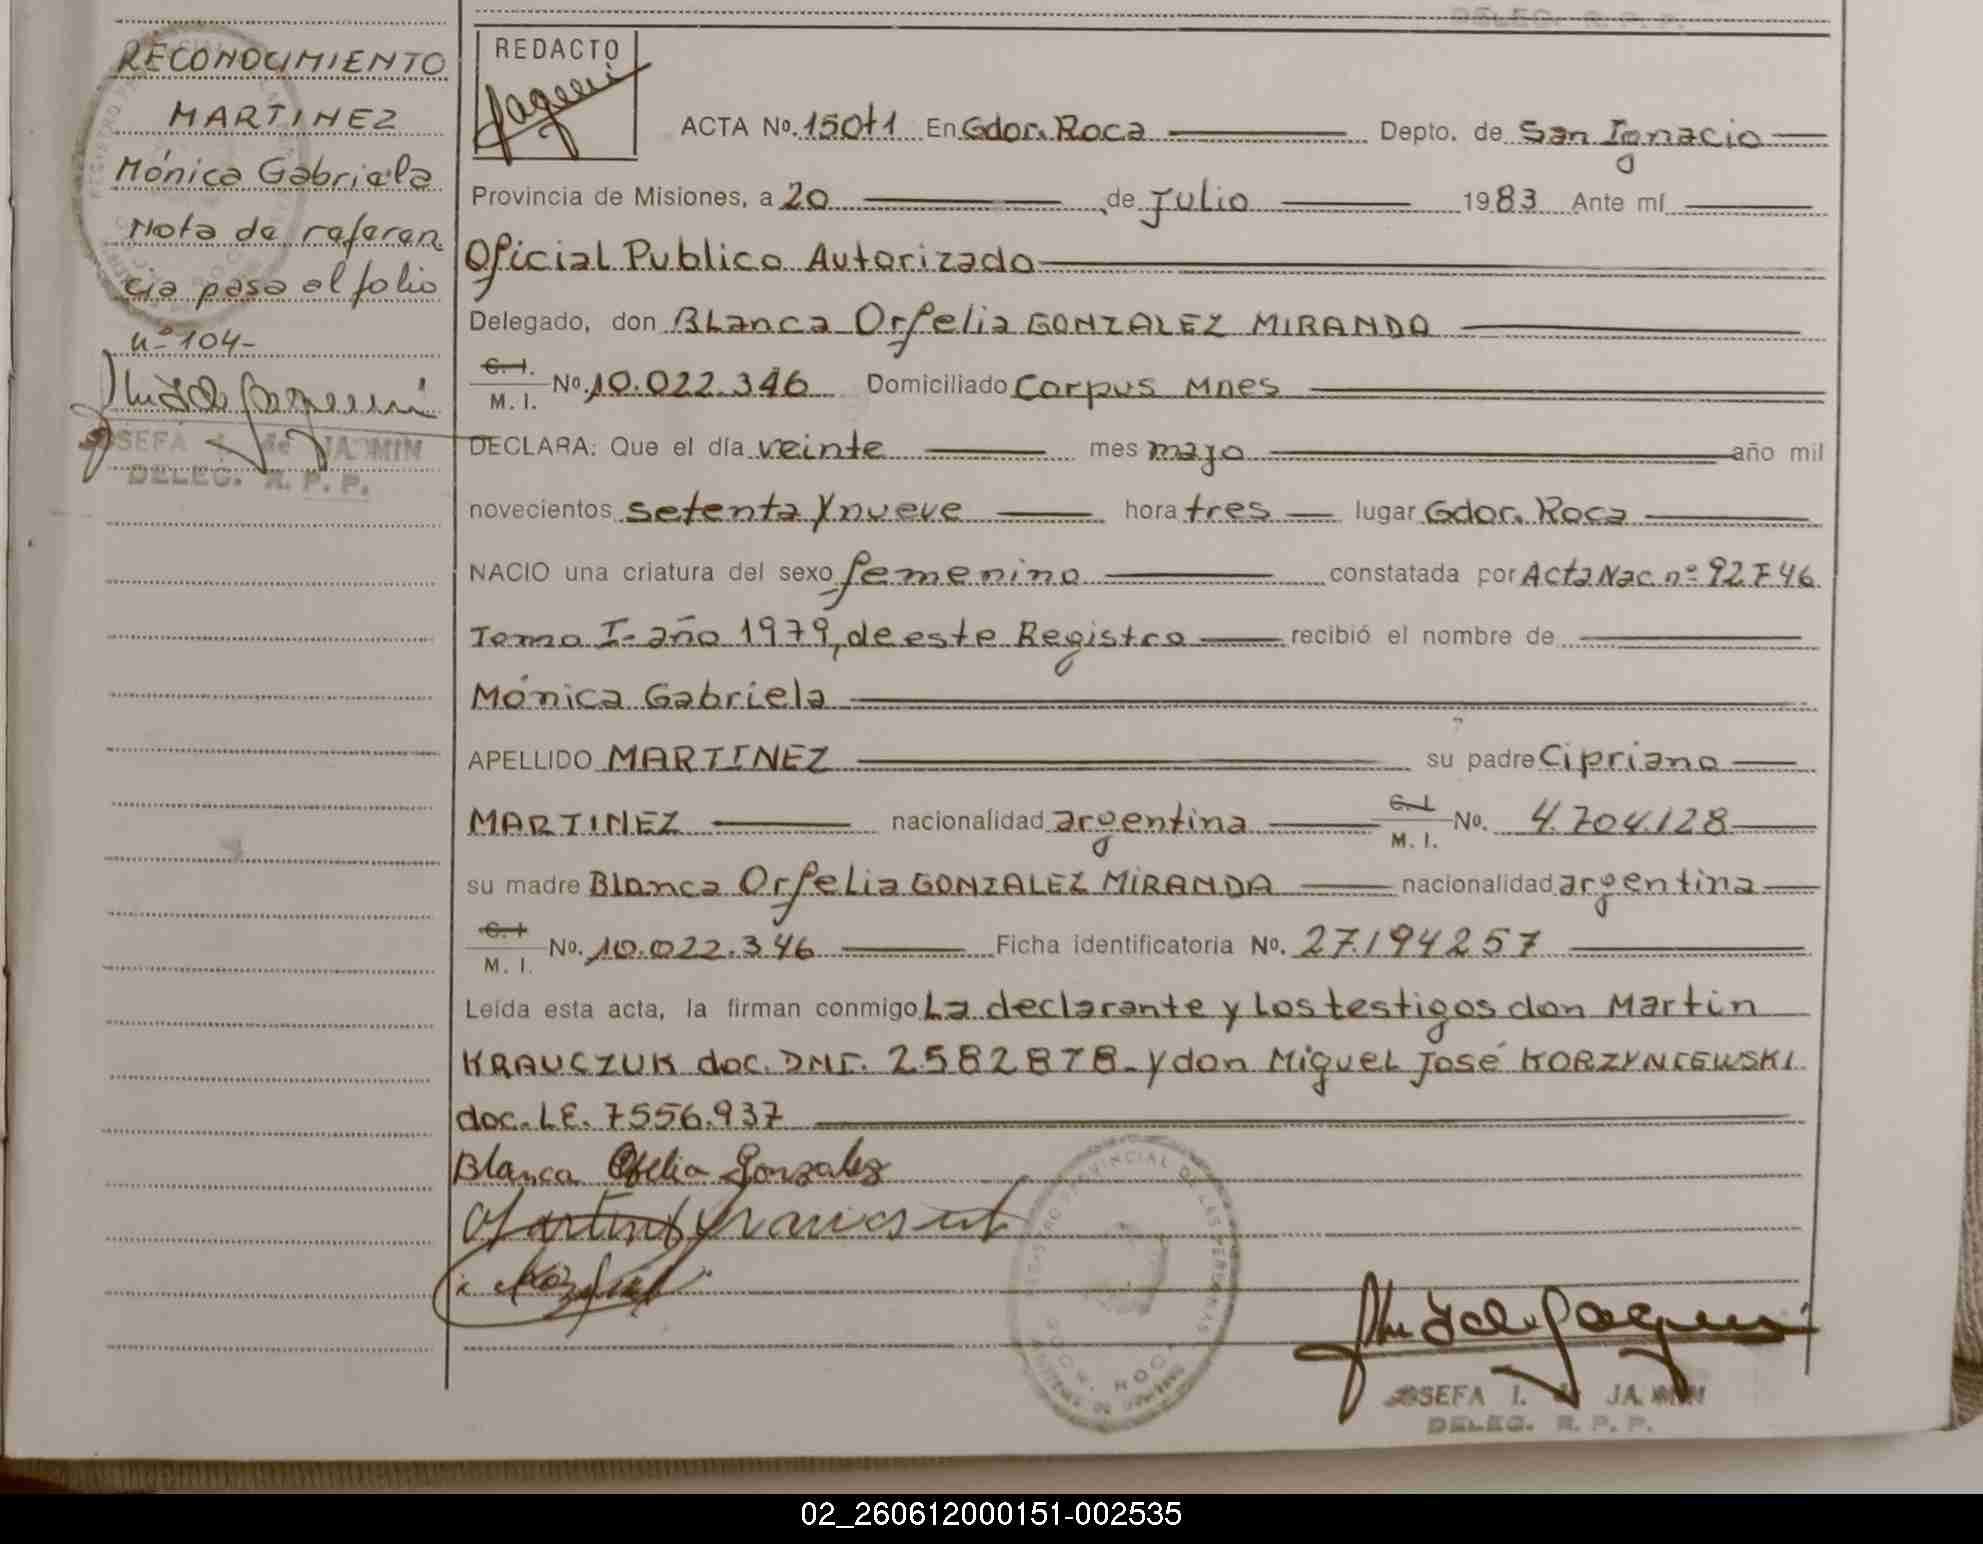 RECONOCIMIENTO
MARTINEZ
Mónica Gabriela
Nota de referen
cia pasa al folio
nº 104-
DELEG. R. P. P.
REDACTO
ACTA Nº. En Gdor. Roca Depto. de San Ignacio
Provincia de Misiones, a 20 de Julio 1983 Ante mí
Oficial Publico Autorizado
Delegado, don Blanca Orfelia GONZALEZ MIRANDA
C. I. M. I. Nº. 10.022.346 Domiciliado Corpus Mnes
DECLARA: Que el día veinte mes mayo año mil
novecientos setenta y nueve hora tres lugar Gdor. Roca
NACIO una criatura del sexo femenino constatada por Acta Nac nº 92 F 46
Tomo I- año 1979, de este Registro recibió el nombre de
Mónica Gabriela
APELLIDO MARTINEZ su padre Cipriano
MARTINEZ nacionalidad argentina C. I. M. I. Nº. 4.704.128
su madre Blanca Orfelia GONZALEZ MIRANDA nacionalidad argentina
C. I. M. I. Nº. 10.022.346 Ficha identificatoria Nº. 27.194257
Leída esta acta, la firman conmigo La declarante y los testigos don Martin
KRAUCZUK doc. DNI. 2582878- y don Miguel José KORZYNCEWSKI
doc. LE. 7556.937
Blanca Ofelia Gonzalez
REGISTRO PROVINCIAL DE LAS PERSONAS
GDOR. ROCA
JOSEFA I. de
DELEG. R. P. P.
02_260612000151-002535